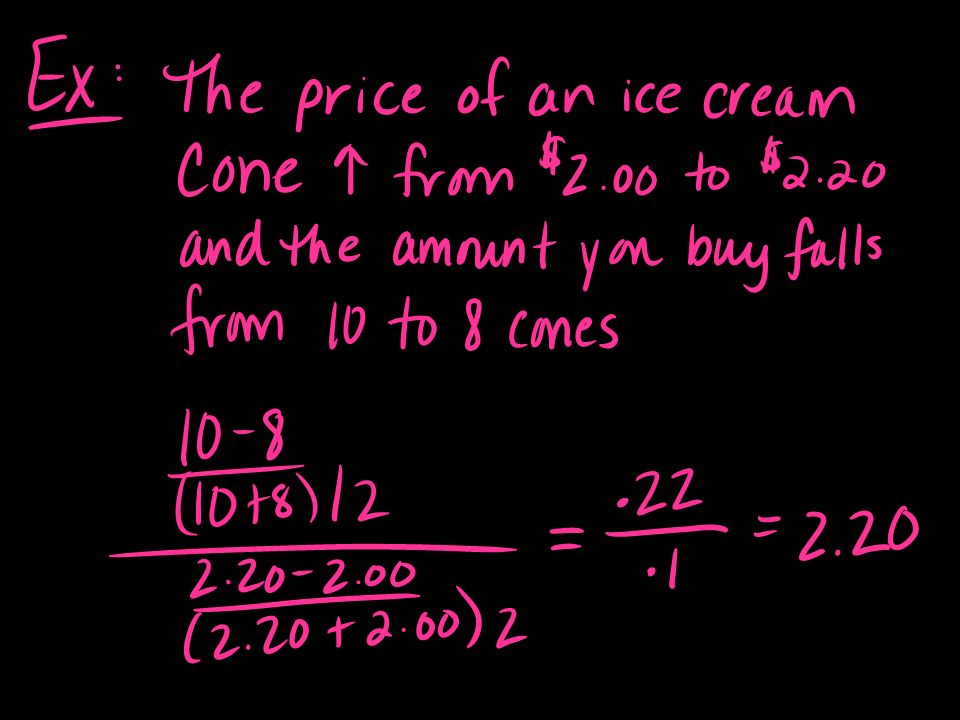 Ex: The price of an ice cream
cone ↑ from $2.00 to $2.20
and the amount you buy falls
from 10 to 8 cones
10-8
(10+8)/2
2.20-2.00
(2.20+2.00)2
= .22
.1
= 2.20